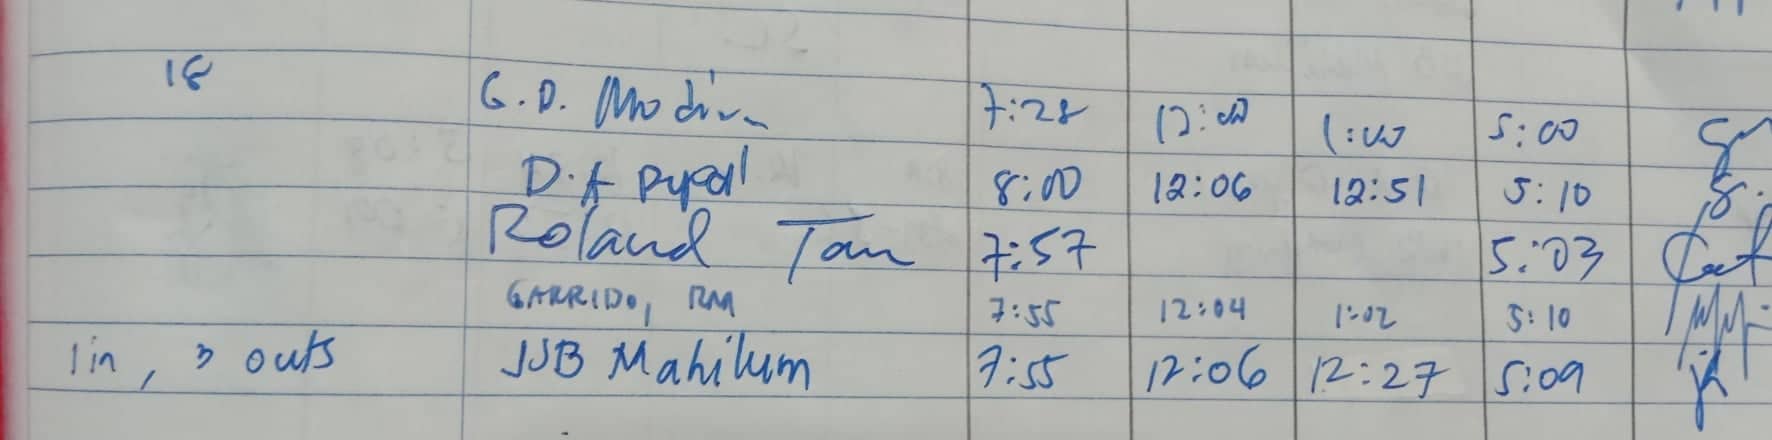 18 G.D. Modina 7:28 12:00 1:00 5:00
D.A 8:00 12:06 12:51 5:10
Roland Tan 7:57 5:03
GARRIDO, RM 7:55 12:04 1:02 5:10
1 in, 3 outs JSB Mahilum 7:55 12:06 12:27 5:09